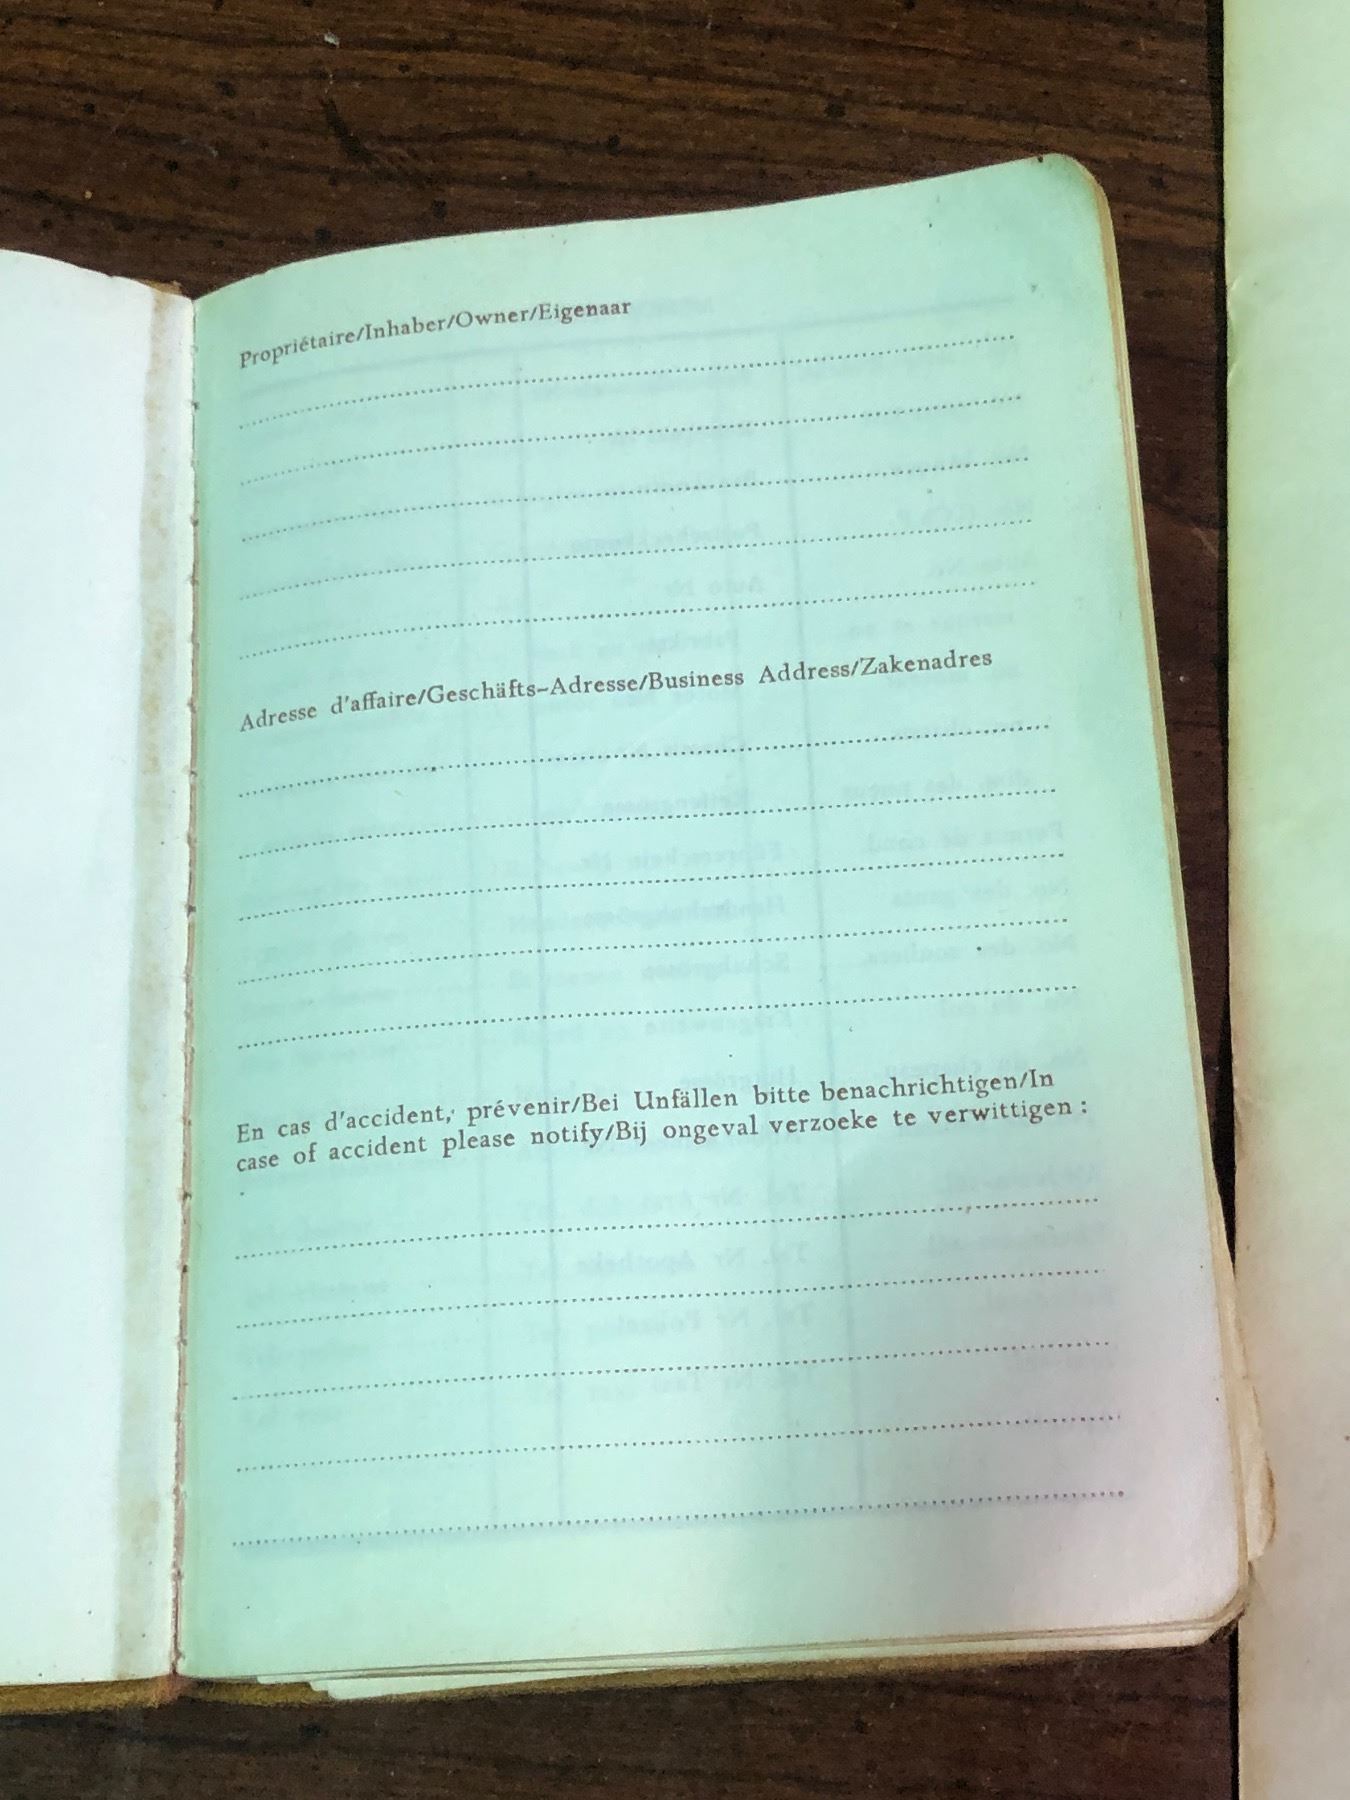 Propriétaire/Inhaber/Owner/Eigenaar
Adresse d'affaire/Geschäfts-Adresse/Business Address/Zakenadres
En cas d'accident, prévenir/Bei Unfällen bitte benachrichtigen/In
case of accident please notify/Bij ongeval verzoeke te verwittigen :